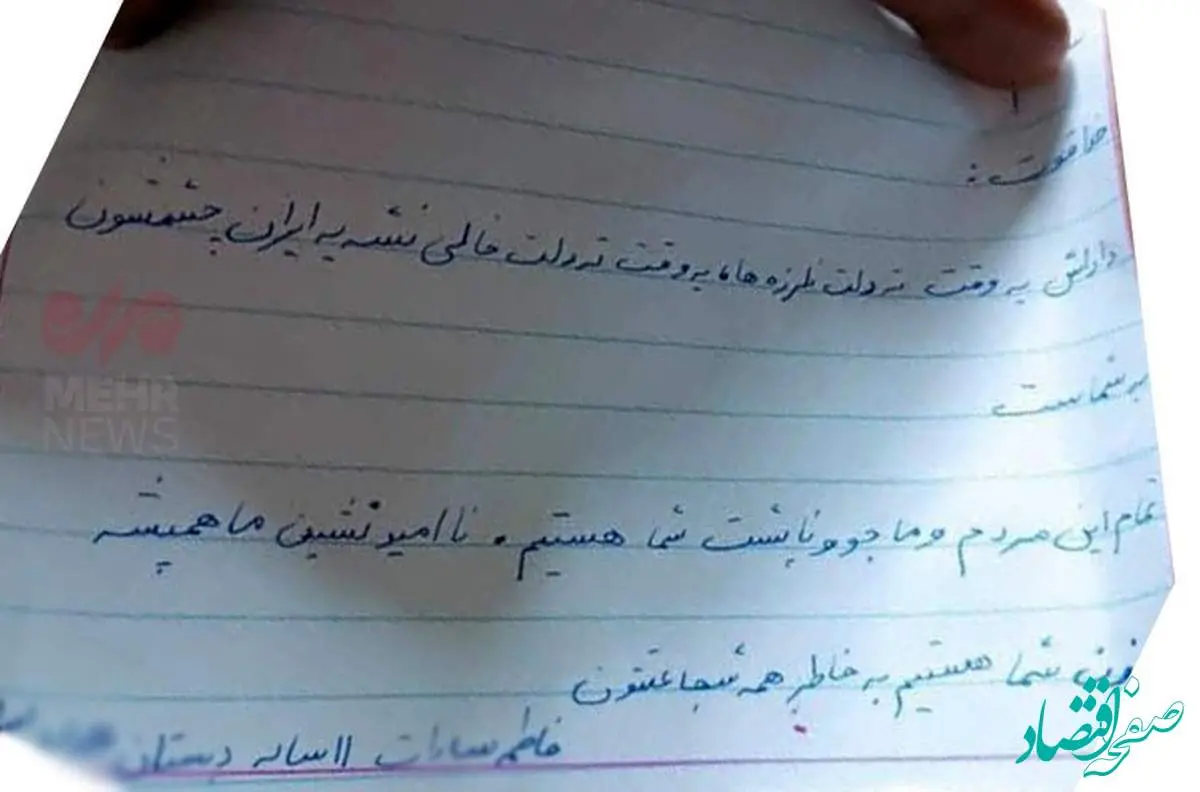 خداقوت:
داداش یه وقت ته دلت نلرزه ها، یه وقت ته دلت خالی نشه یه ایران چشمشون
به شماست
تمام این مردم و ما جوونا پشت شما هستیم. ناامید نشین ما همیشه
شما هستیم به خاطر همه شجاعتتون
فاطمه سادات ۱۱ ساله دبستان
MEHR
NEWS
صفحه اقتصاد